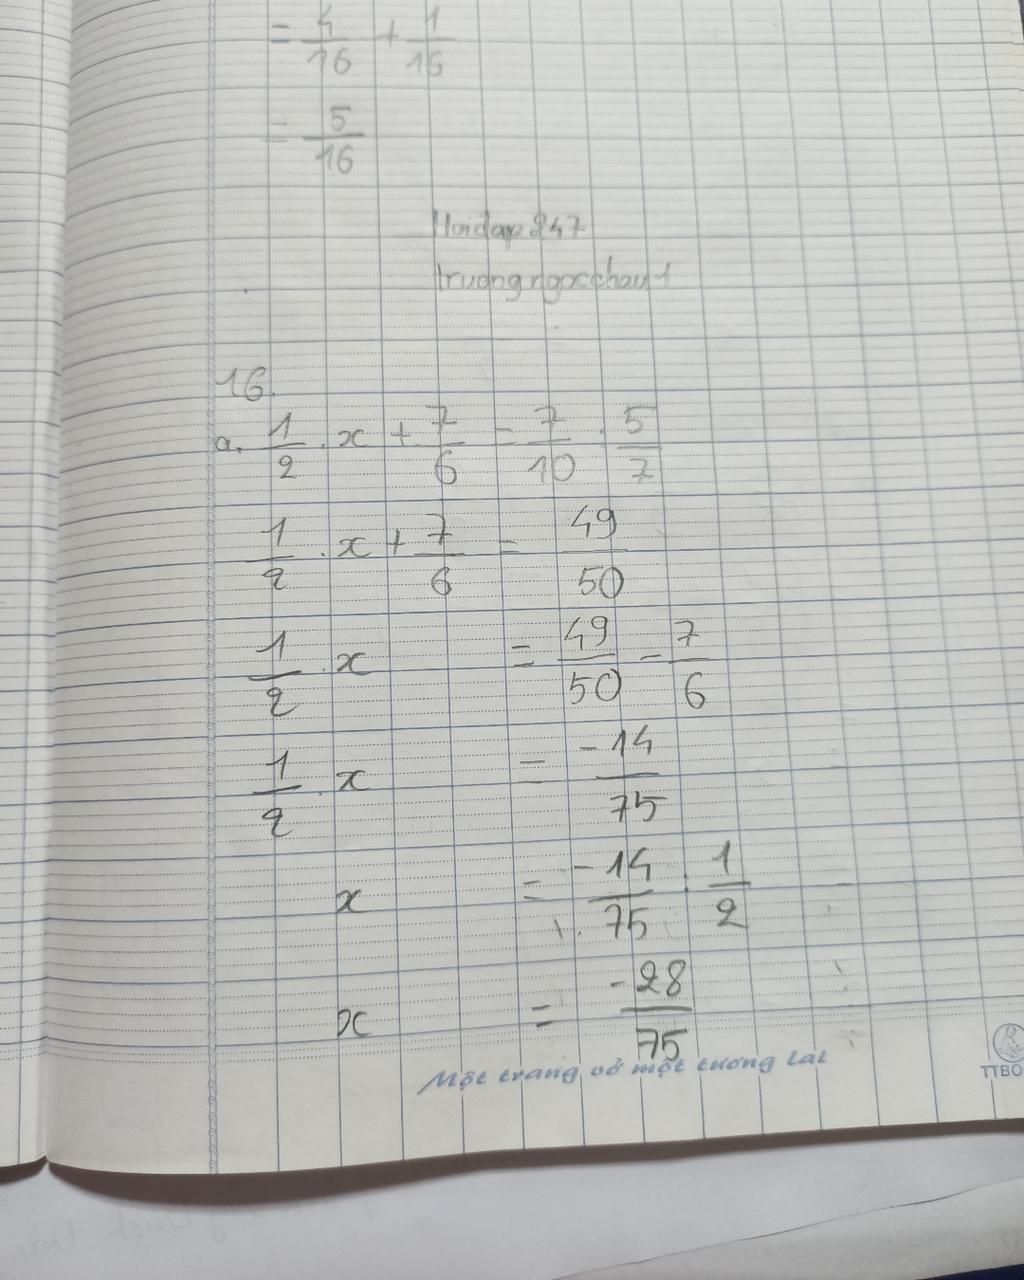 = 4/16 + 1/16
= 5/16
Hoidap247
truongngocchau1
16.
a. 1/2 . x + 7/6 = 7/10 : 5/7
1/2 . x + 7/6 = 49/50
1/2 . x = 49/50 - 7/6
1/2 . x = -14/75
x = -14/75 : 1/2
x = -28/75
Một trang vở một tương lai
TTBO